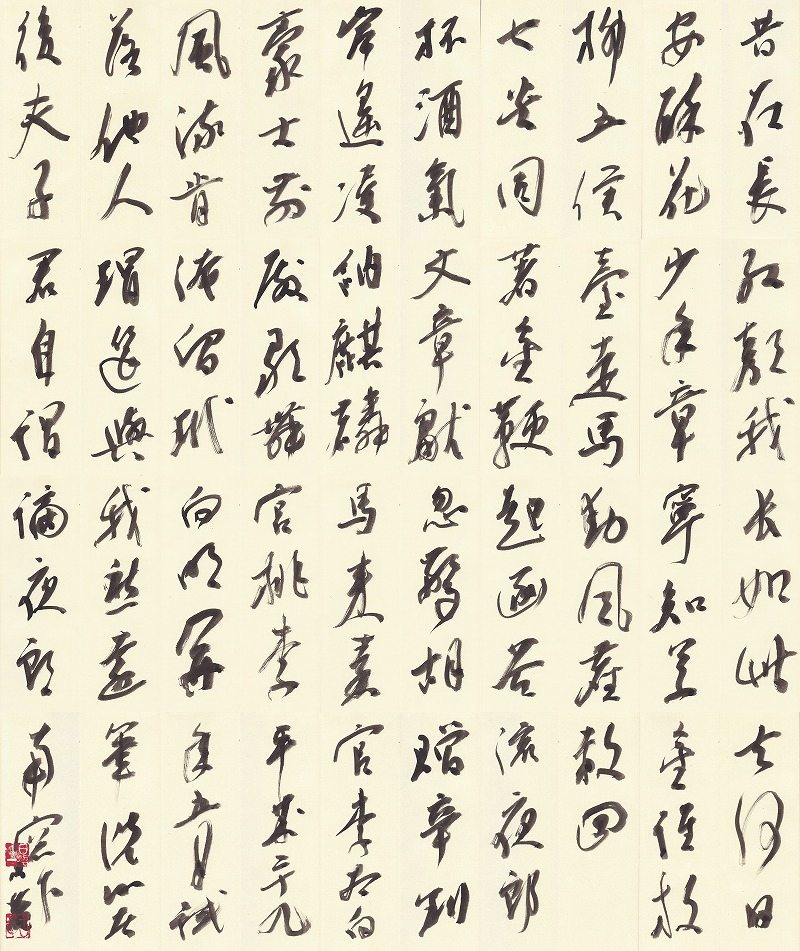 昔在長
安醉花
柳五侯
七貴同
杯酒氣
岸遙凌
豪士前
風流肯
落他人
後夫子
紅顏我
少年章
臺走馬
著金鞭
文章獻
納麒麟
殿歌舞
淹留玳
瑁筵與
君自謂
长如此
寧知草
動風塵
起函谷
忽驚胡
馬來秦
宮桃李
向明開
我愁遠
謫夜郎
去何日
金雞放
赦回
流夜郎
贈辛判
官李太白
平成二十九
年五月試
筆洗心居
南窓下